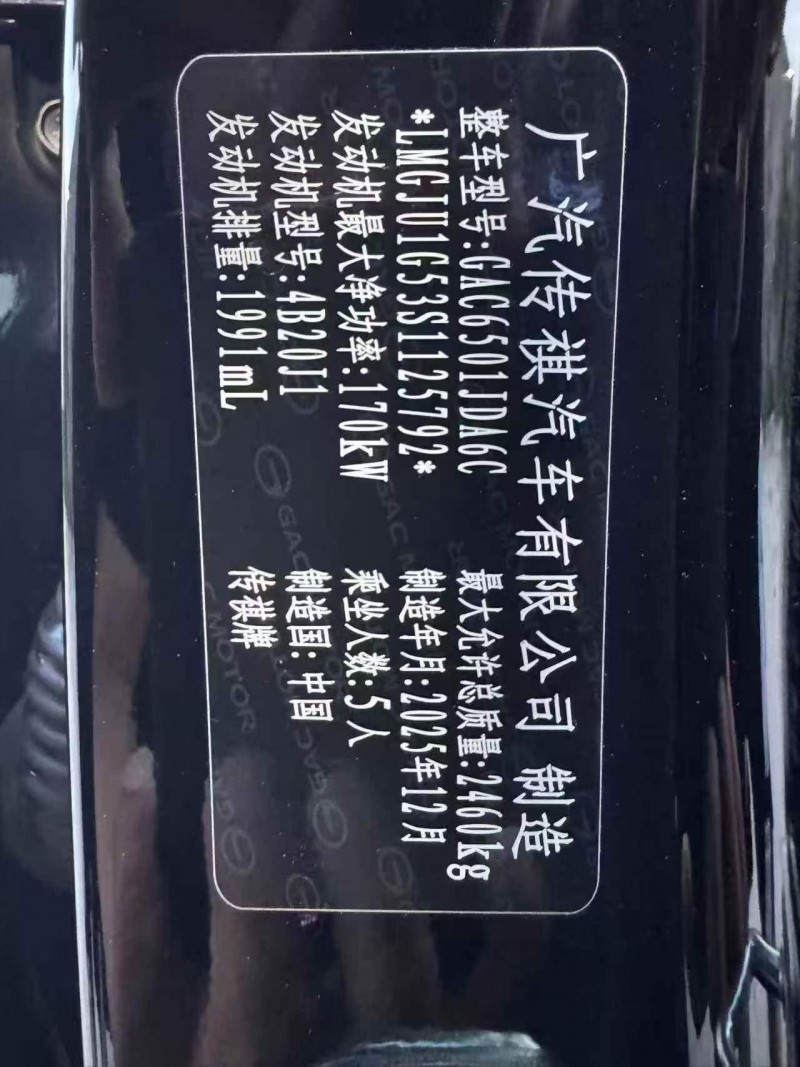 广汽传祺汽车有限公司 制造
整车型号:GAC6501JDA6C 最大允许总质量:2460kg
*LMGJU1G53S1125792* 制造年月:2025年12月
发动机最大净功率:170kW 乘坐人数:5人
发动机型号:4B20J1 制造国:中国
发动机排量:1991mL 传祺牌
GAC MOTOR